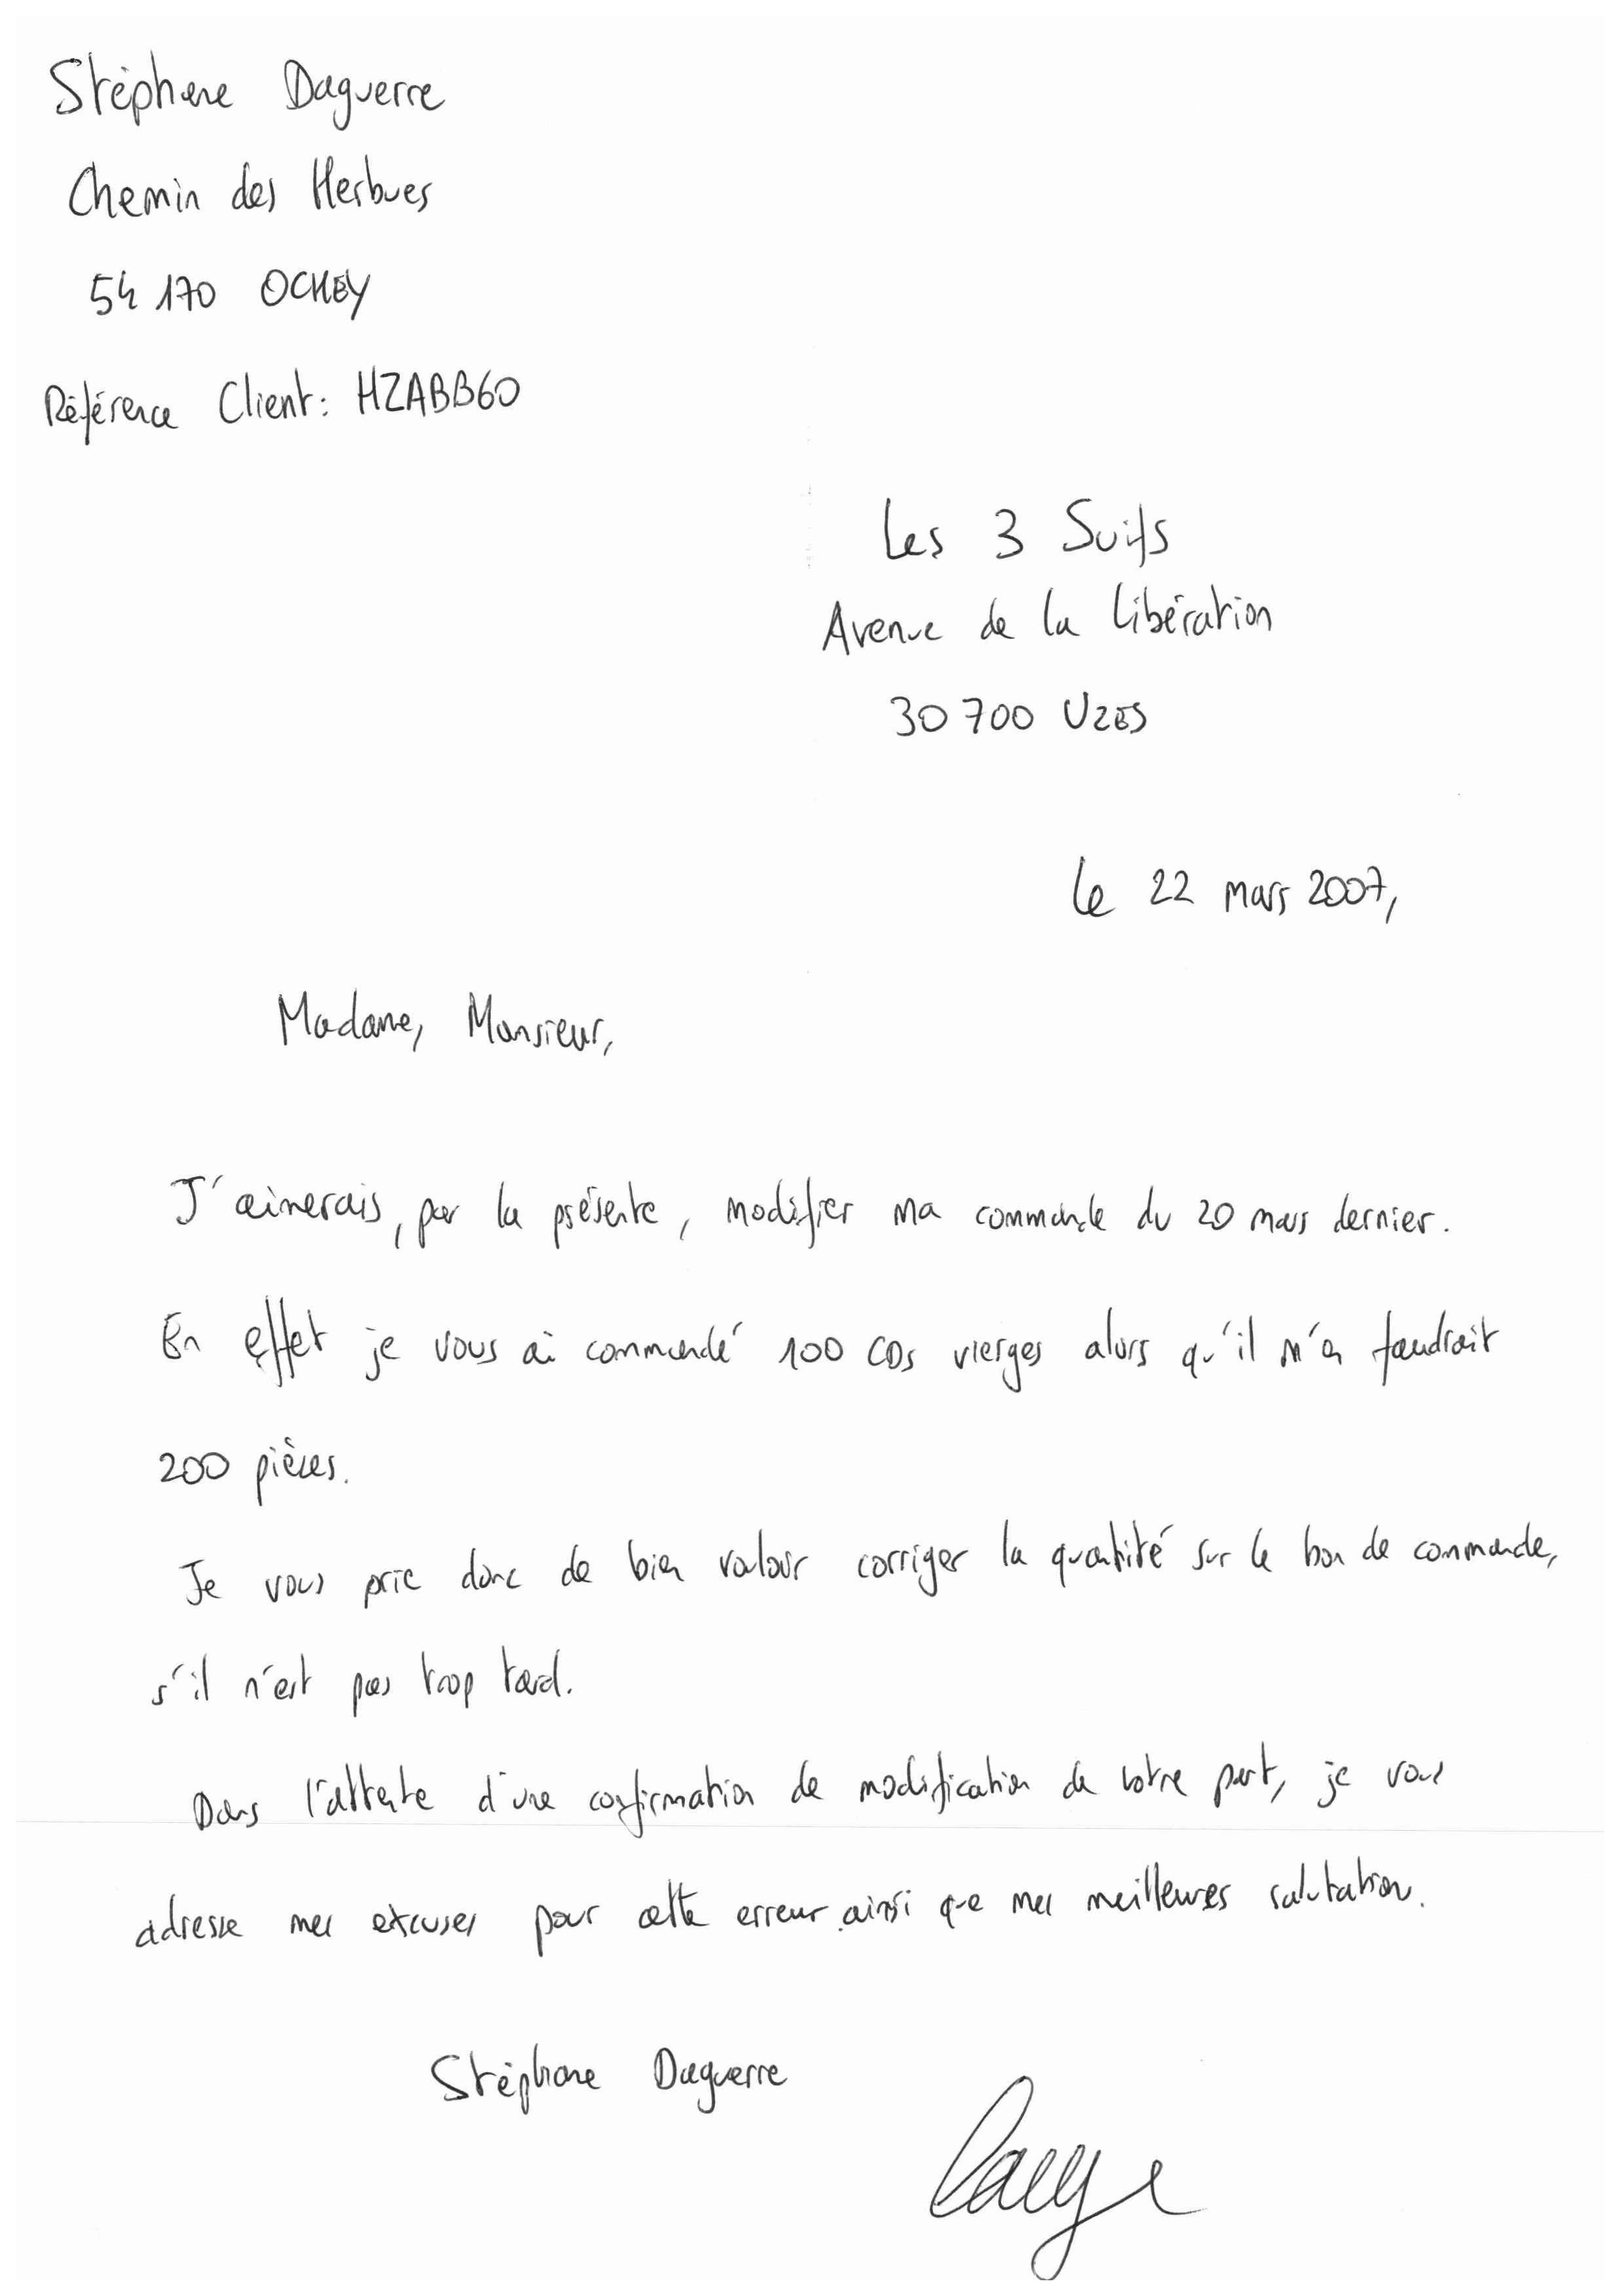 Stéphane Daguerre
Chemin des Herbues
54 170 OCHEY
Référence Client : HZABB60
Les 3 Suifs
Avenue de la Libération
30 700 UZES
Le 22 mars 2007,
Madame, Monsieur,
J'aimerais, par la présente, modifier ma commande du 20 mars dernier.
En effet je vous ai commandé 100 CDs vierges alors qu'il m'en faudrait
200 pièces.
Je vous prie donc de bien vouloir corriger la quantité sur le bon de commande,
s'il n'est pas trop tard.
Dans l'attente d'une confirmation de modification de votre part, je vous
adresse mes excuses pour cette erreur ainsi que mes meilleures salutation.
Stéphane Daguerre